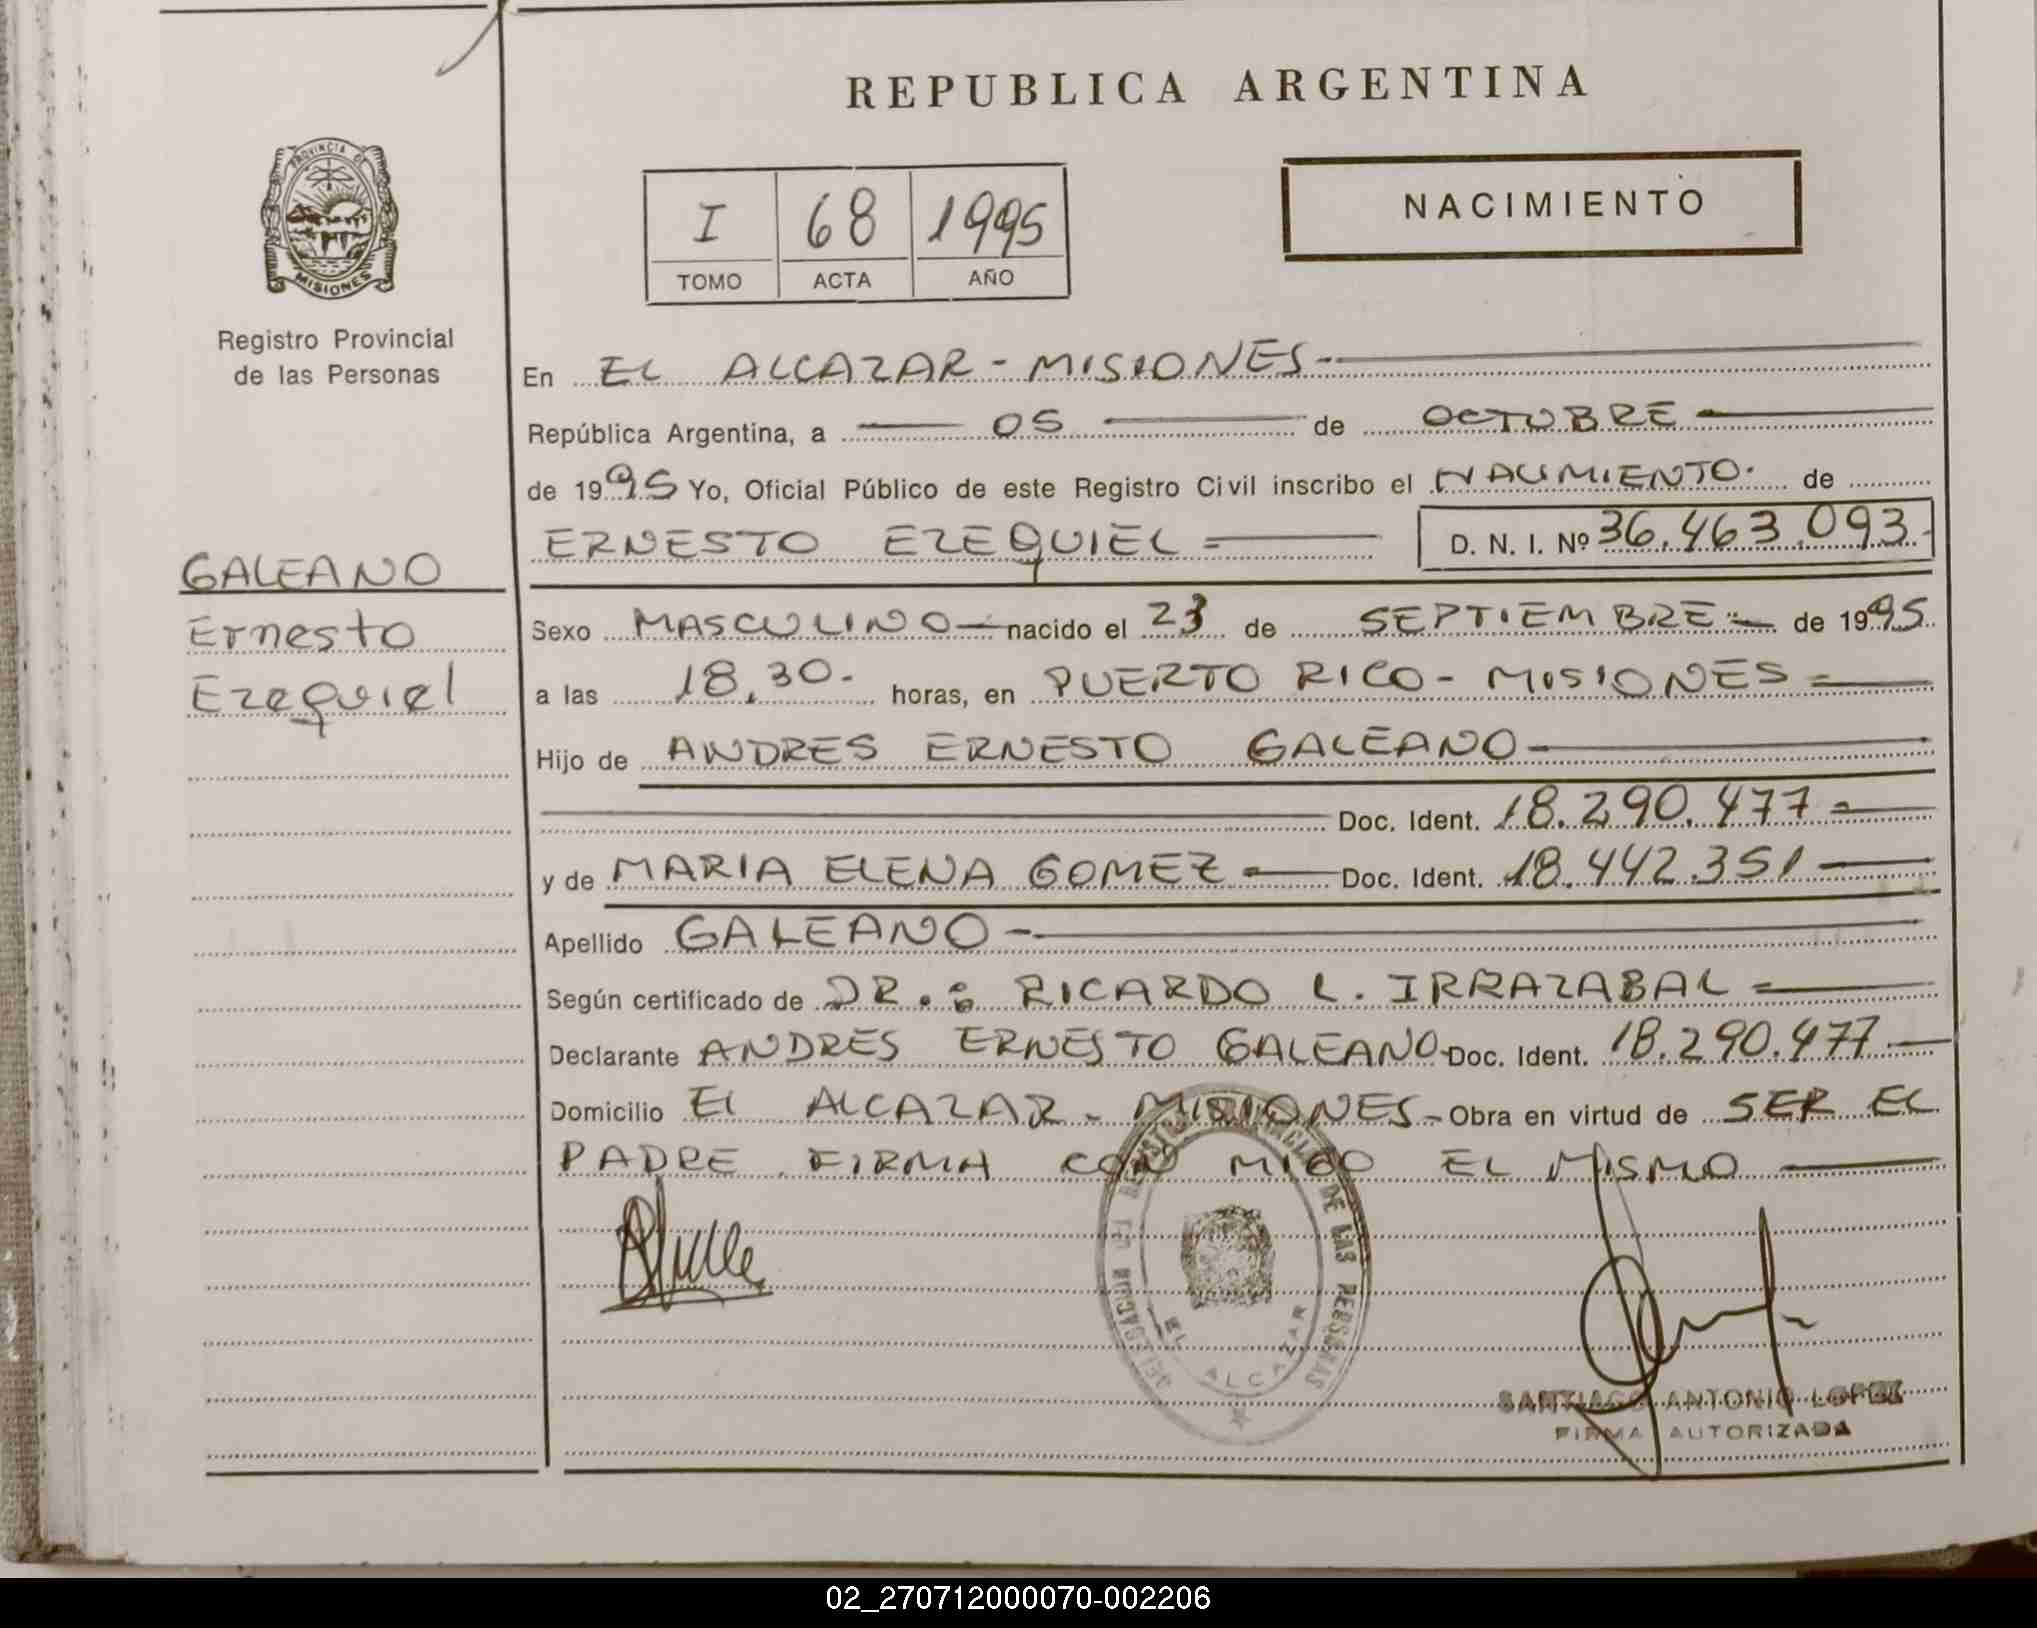 REPUBLICA ARGENTINA
PROVINCIA DE
MISIONES
Registro Provincial
de las Personas
I 68 1995
TOMO ACTA AÑO
NACIMIENTO
En EL ALCAZAR - MISIONES
República Argentina, a 05 de OCTUBRE
de 1995 Yo, Oficial Público de este Registro Civil inscribo el NACIMIENTO. de
ERNESTO EZEQUIEL D. N. I. Nº 36.463.093
GALEANO
Ernesto
Ezequiel
Sexo MASCULINO nacido el 23 de SEPTIEMBRE de 1995
a las 18,30 horas, en PUERTO RICO - MISIONES
Hijo de ANDRES ERNESTO GALEANO
Doc. Ident. 18.290.477
y de MARIA ELENA GOMEZ Doc. Ident. 18.442.351
Apellido GALEANO
Según certificado de DR.: RICARDO L. IRRAZABAL
Declarante ANDRES ERNESTO GALEANO Doc. Ident. 18.290.477
Domicilio El ALCAZAR - MISIONES - Obra en virtud de SER EL
PADRE FIRMA CON MIGO EL MISMO
DE LAS PERSONAS
EL ALCAZAR
SANTIAGO ANTONIO LOPEZ
FIRMA AUTORIZADA
02_270712000070-002206